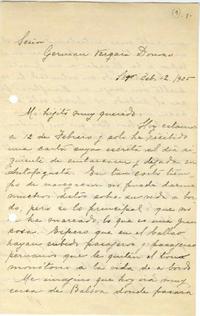 Señor
German Vergara Donoso
Stgo. Feb. 12/925
Mi hijito muy querido:
Hoy estamos
a 12 de Febrero y solo he recibido
una carta suya escrita el dia si
guiente de embarcarse y dejada en
Antofagasta. En tan corto tiem
po de navegacion no puede darme
muchos datos sobre su vida a bor
do, pero si lo principal: que no
se ha mareado, lo que es una gran
cosa. Espero que en el Callao
hayan subido pasajeros y pasajeras
peruanos que le quiten el tono
monótono a la vida de a bordo
Me imagino que hoy irá muy
cerca de Balboa donde pasará